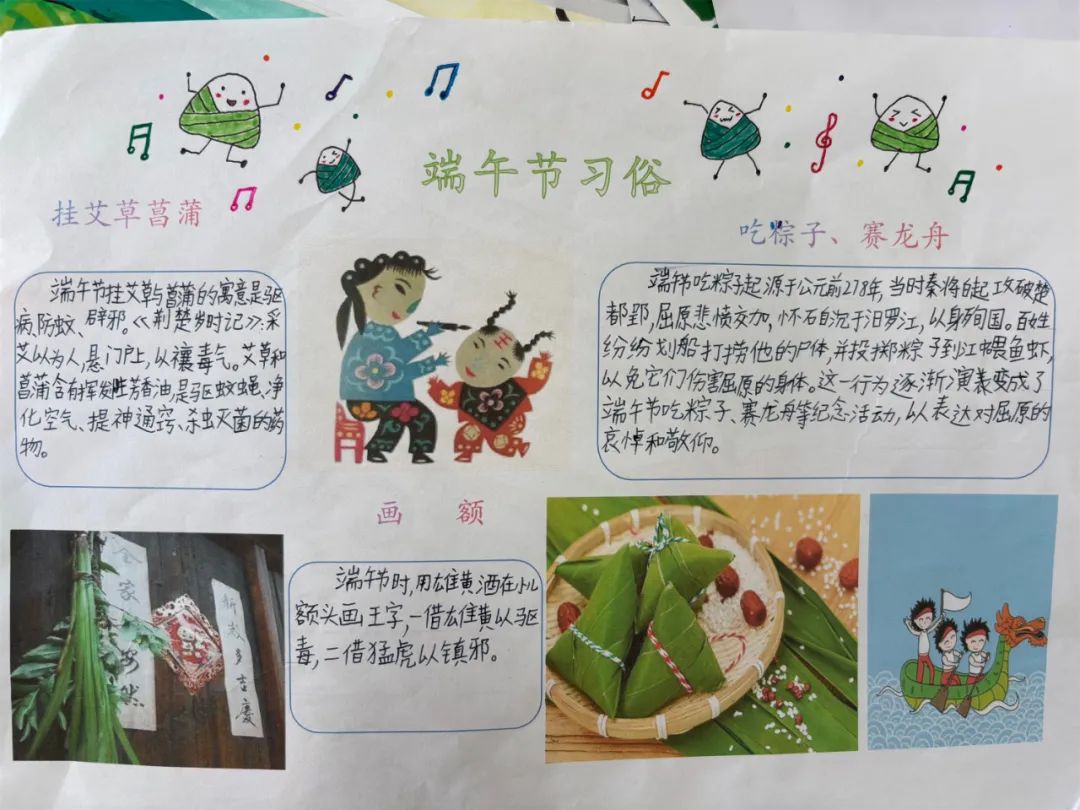 端午节习俗
挂艾草菖蒲
端午节挂艾草与菖蒲的寓意是驱
病、防蚊、辟邪。《荆楚岁时记》:采
艾以为人,悬门户上,以禳毒气。艾草和
菖蒲含有挥发性芳香油,是驱蚊蝇、净
化空气、提神通窍、杀虫灭菌的药
物。
吃粽子、赛龙舟
端午节吃粽子起源于公元前278年,当时秦将白起攻破楚
都郢,屈原悲愤交加,怀石自沉于汨罗江,以身殉国。百姓
纷纷划船打捞他的尸体,并投掷粽子到江中喂鱼虾,
以免它们伤害屈原的身体。这一行为逐渐演变成了
端午节吃粽子、赛龙舟等纪念活动,以表达对屈原的
哀悼和敬仰。
画 额
端午节时,用雄黄酒在小儿
额头画王字,一借雄黄以驱
毒,二借猛虎以镇邪。
全家安然
新 多吉慶